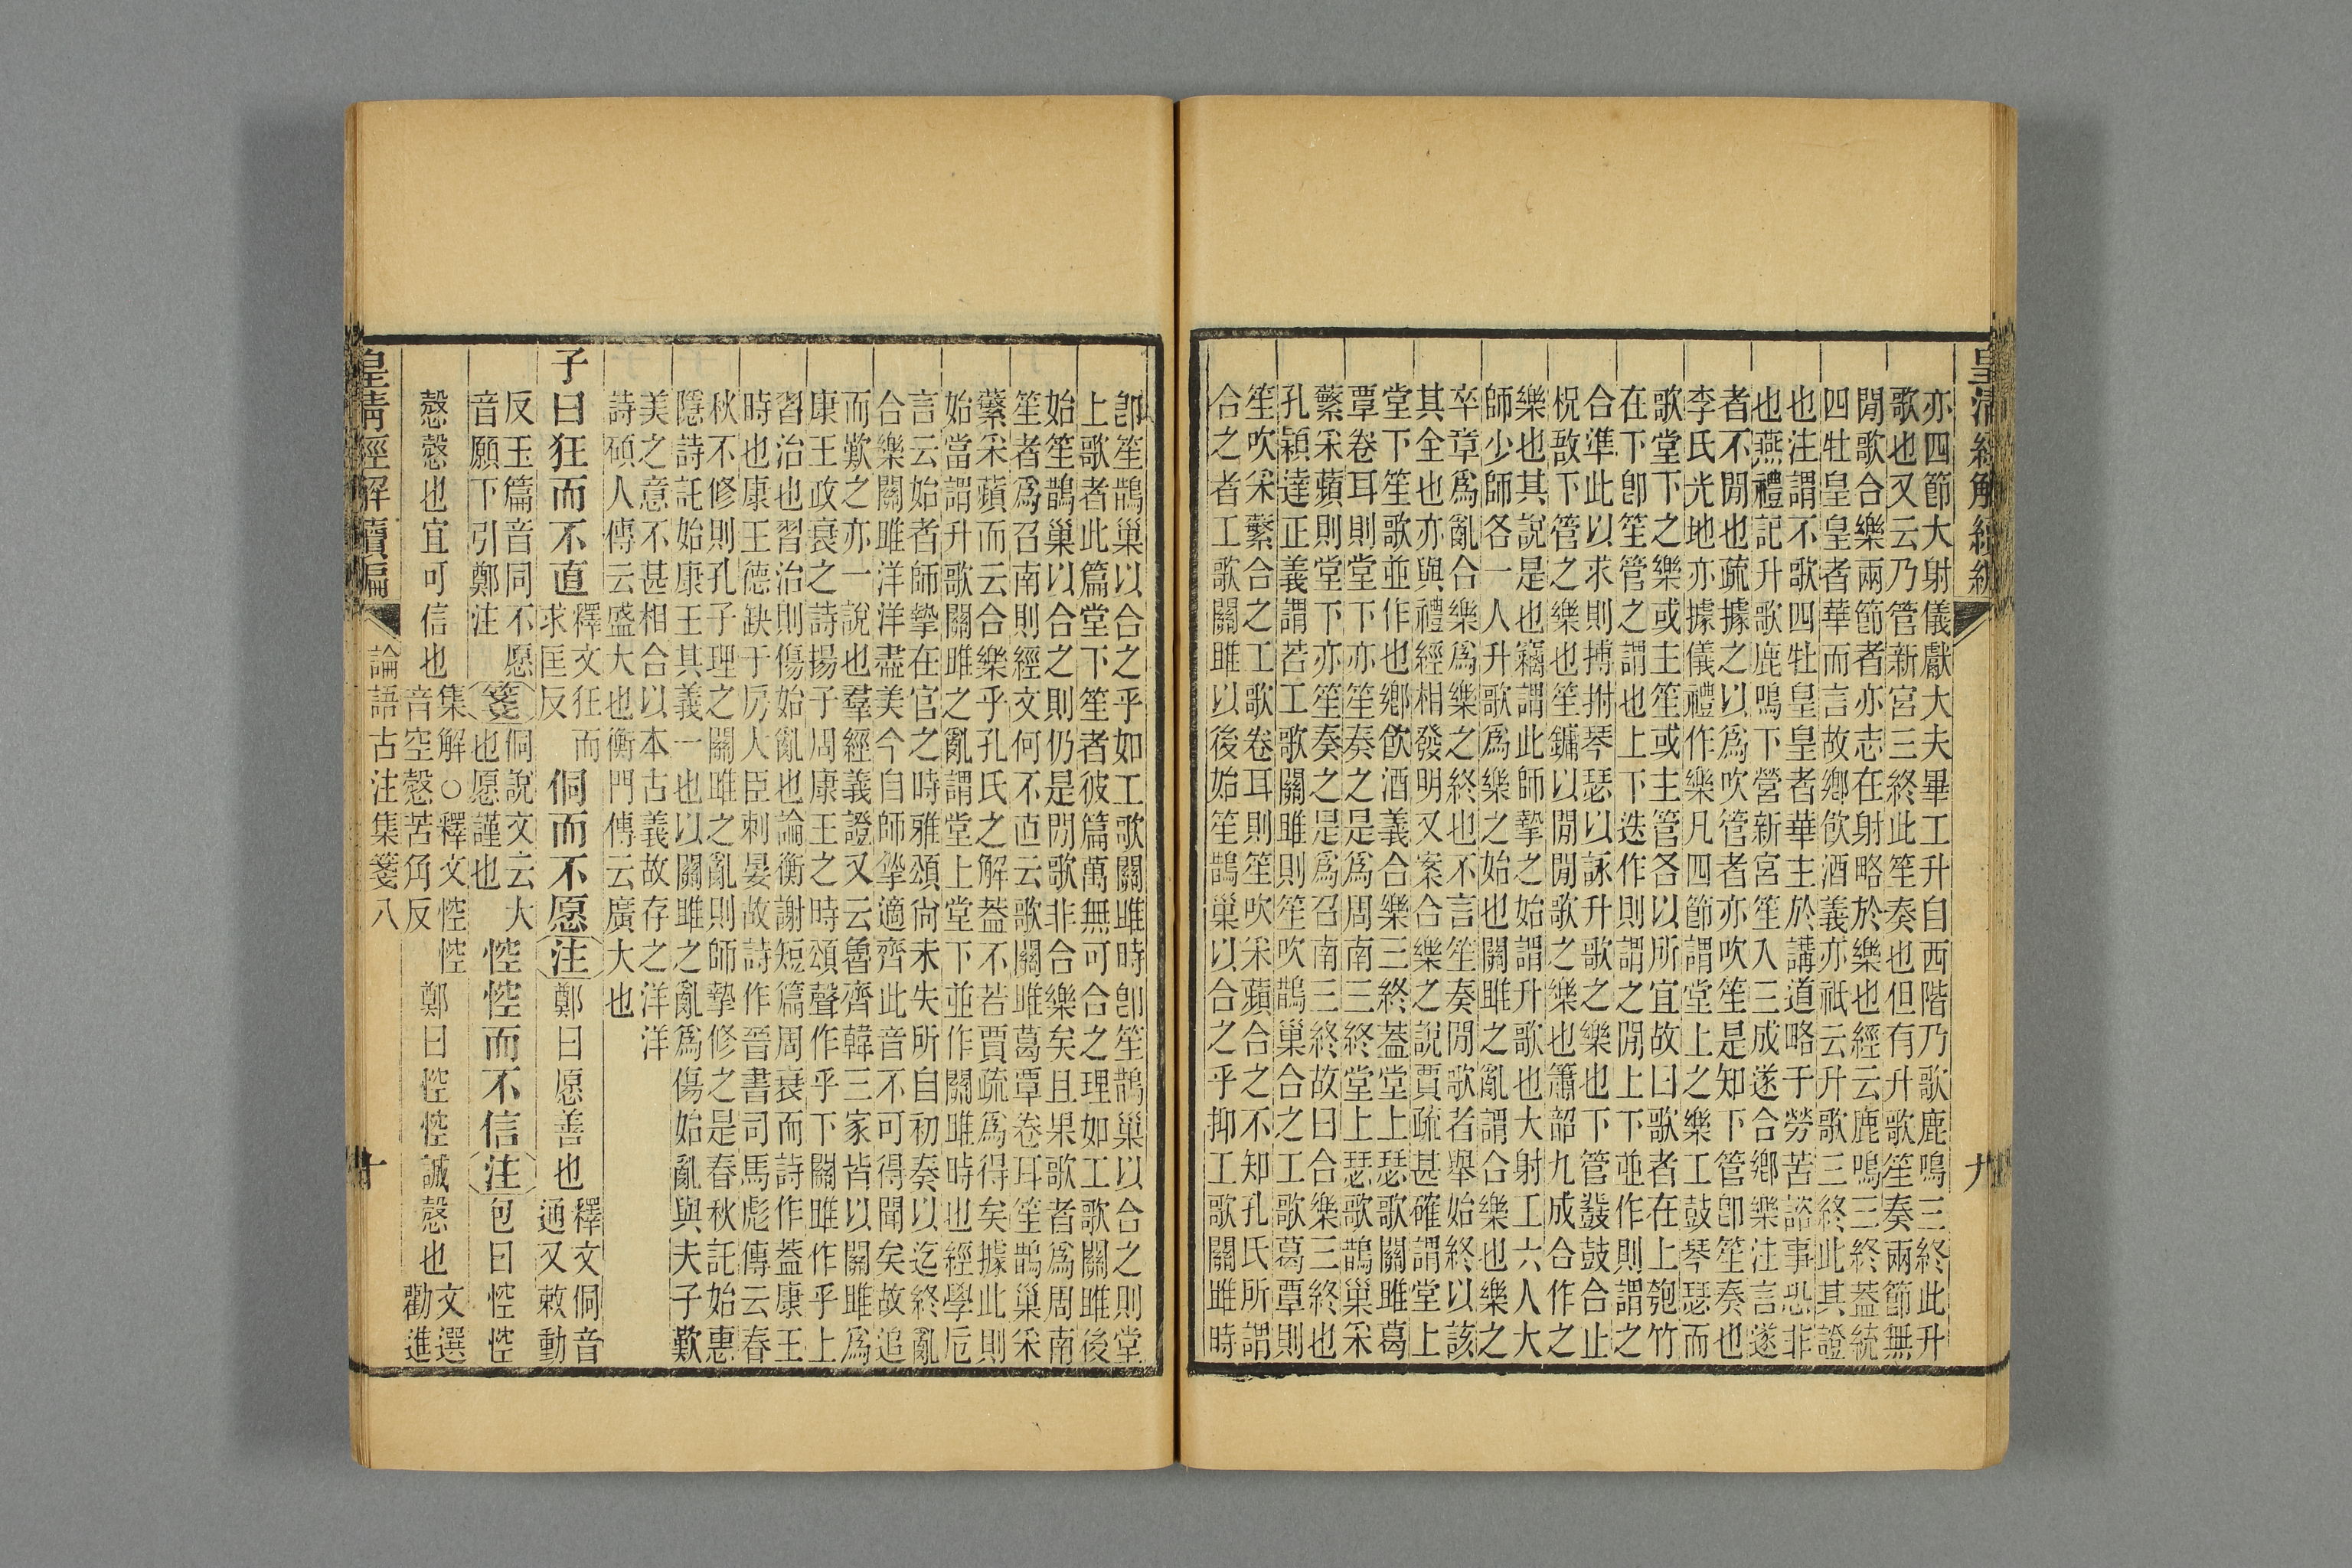 皇清經解續編
九
亦四節大射儀獻大夫畢工升自西階乃歌鹿鳴三終此升
歌也又云乃管新宮三終此笙奏也但有升歌笙奏兩節無
閒歌合樂兩節者亦志在射略於樂也經云鹿鳴三終蓋統
四牡皇皇者華而言故鄉飮酒義亦祇云升歌三終此其證
也注謂不歌四牡皇皇者華主於講道略于勞苦諮事恐非
也燕禮記升歌鹿鳴下管新宮笙入三成遂合鄉樂注言遂
者不閒也疏據之以爲吹管者亦吹笙是知下管卽笙奏也
李氏光地亦據儀禮作樂凡四節謂堂上之樂工鼓琴瑟而
歌堂下之樂或主笙或主管各以所宜故曰歌者在上匏竹
在下卽笙管之謂也上下迭作則謂之閒上下並作則謂之
合準此以求則搏拊琴瑟以詠升歌之樂也下管鼗鼓合止
柷敔下管之樂也笙鏞以閒閒歌之樂也簫韶九成合作之
樂也其說是也竊謂此師摯之始謂升歌也大射工六人大
師少師各一人升歌爲樂之始也關雎之亂謂合樂也樂之
卒章爲亂合樂爲樂之終也不言笙奏閒歌者舉始終以該
其全也亦與禮經相發明又案合樂之說賈疏甚確謂堂上
堂下笙歌並作也鄉飮酒義合樂三終蓋堂上瑟歌關雎葛
覃卷耳則堂下亦笙奏之是爲周南三終堂上瑟歌鵲巢采
蘩采蘋則堂下亦笙奏之是爲召南三終故曰合樂三終也
孔穎達正義謂若工歌關雎則笙吹鵲巢合之工歌葛覃則
笙吹采蘩合之工歌卷耳則笙吹采蘋合之不知孔氏所謂
合之者工歌關雎以後始笙鵲巢以合之乎抑工歌關雎時
卽笙鵲巢以合之乎如工歌關雎時卽笙鵲巢以合之則堂
上歌者此篇堂下笙者彼篇萬無可合之理如工歌關雎後
始笙鵲巢以合之則仍是閒歌非合樂矣且果歌者爲周南
笙者爲召南則經文何不直云歌關雎葛覃卷耳笙鵲巢采
蘩采蘋而云合樂乎孔氏之解蓋不若賈疏爲得矣據此則
始當謂升歌關雎之亂謂堂上堂下並作關雎時也經學卮
言云始者師摯在官之時雅頌尙未失所自初奏以迄終亂
合樂關雎洋洋盡美今自師摯適齊此音不可得聞矣故追
而歎之亦一說也羣經義證又云魯齊韓三家皆以關雎爲
康王政衰之詩揚子周康王之時頌聲作乎下關雎作乎上
習治也習治則傷始亂也論衡謝短篇周衰而詩作蓋康王
時也康王德缺于房大臣刺晏故詩作晉書司馬彪傳云春
秋不修則孔子理之關雎之亂則師摯修之是春秋託始惠
隱詩託始康王其義一也以關雎之亂爲傷始亂與夫子歎
美之意不甚相合以本古義故存之洋洋
詩碩人傳云盛大也衡門傳云廣大也
子曰狂而不直釋文狂而求匡反侗而不愿注鄭曰愿善也釋文侗音通又敕動
反玉篇音同不愿音願下引鄭注箋侗說文云大也愿謹也悾悾而不信注包曰悾悾
愨愨也宜可信也集解○釋文悾悾音空愨苦角反鄭曰悾悾誠愨也文選勸進
皇清經解續編
論語古注集箋八
十